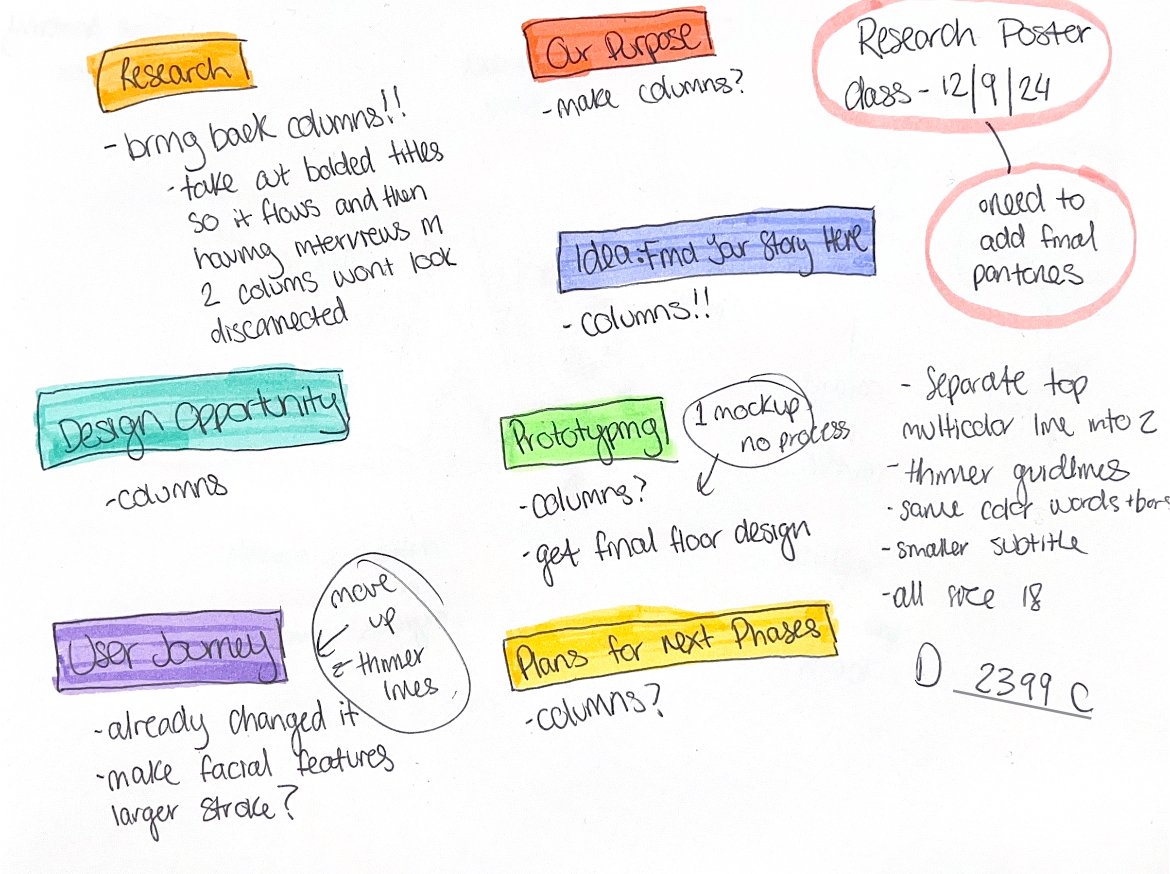 Research
- bring back columns!!
- take out bolded titles
so it flows and then
having interviews in
2 colums wont look
disconnected
Our Purpose
- make columns?
Research Poster
class - 12/9/24
need to
add final
pantones
Idea: Find Your Story Here
- columns!!
Design Opportunity
- columns
Prototyping
1 mockup
no process
- columns?
- get final floor design
- Separate top
multicolor line into 2
- thinner guidlines
- same color words + bars
- smaller subtitle
- all size 18
D 2399 C
User Journey
move
up
& thinner
lines
- already changed it
- make facial features
larger stroke?
Plans for Next Phases
- columns?